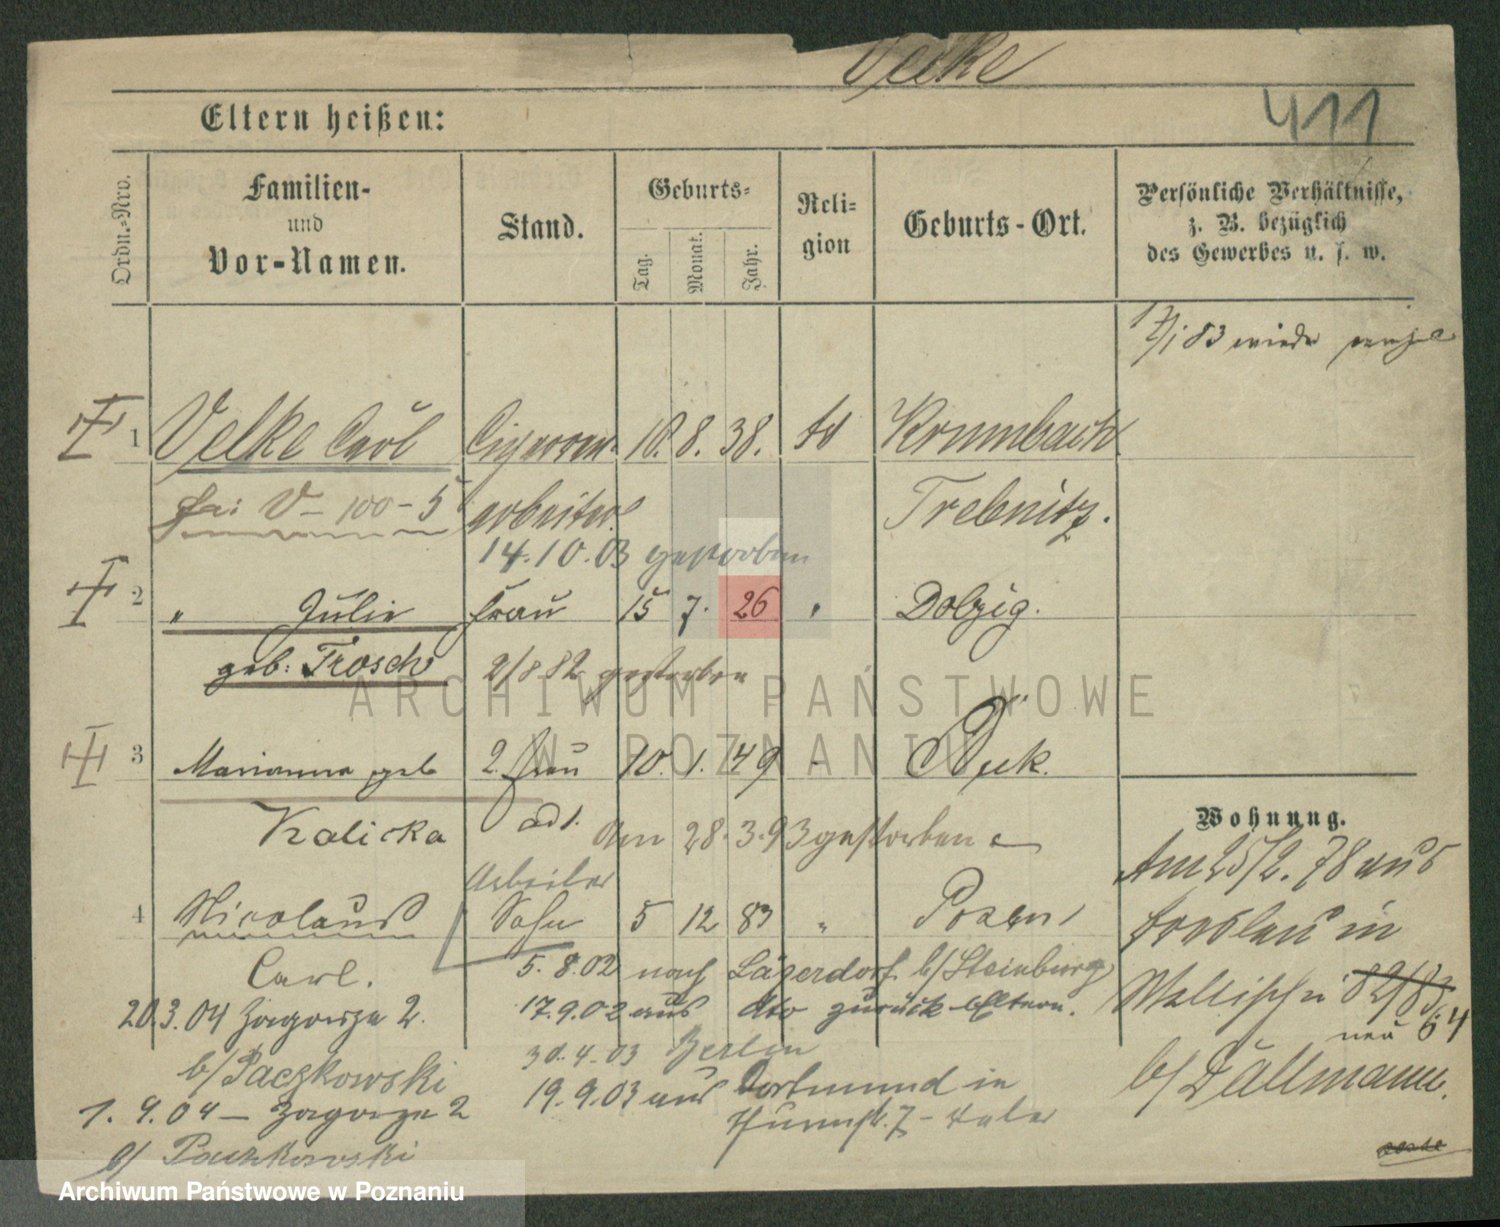 Velke
411
Eltern heißen:
Ordn.-Nro.
Familien-
und
Vor-Namen.
Stand.
Geburts-
Tag.
Monat.
Jahr.
Reli-
gion
Geburts-Ort.
Persönliche Verhältnisse,
z. B. bezüglich
des Gewerbes u. s. w.
83 wieder
1 Velke Carl Cigarren- 18. 8. 38. Krumbach
V - 100 - 5 arbeiter Trebnitz.
14.10.03 gestorben
2 " Julie Frau 15 7. 26 " Dolzig.
geb: Trosch 2/8 82 gestorben
ARCHIWUM PAŃSTWOWE
W POZNANIU
3 Marianna geb 2. Frau 10. 1. 49 -
Kalicka den 28. 3. 93 gestorben
Arbeiter
4 Nicolaus Sohn 5 12 83 " Posen
Carl. 5.8.02 nach Lägerdorf b/Steinburg
20.3.04 Zagorze 2. 17.9.02 aus dto zurück Eltern.
b/Paczkowski 30.4.03 Berlin
19.9.03 aus Dortmund in
1.4.04 - Zagorze 2
b/ Paczkowski
Wohnung.
Am 25/2. 78 aus
Breslau in
Wallischei 82/83
neu 64
b/ Dallmann.
Archiwum Państwowe w Poznaniu